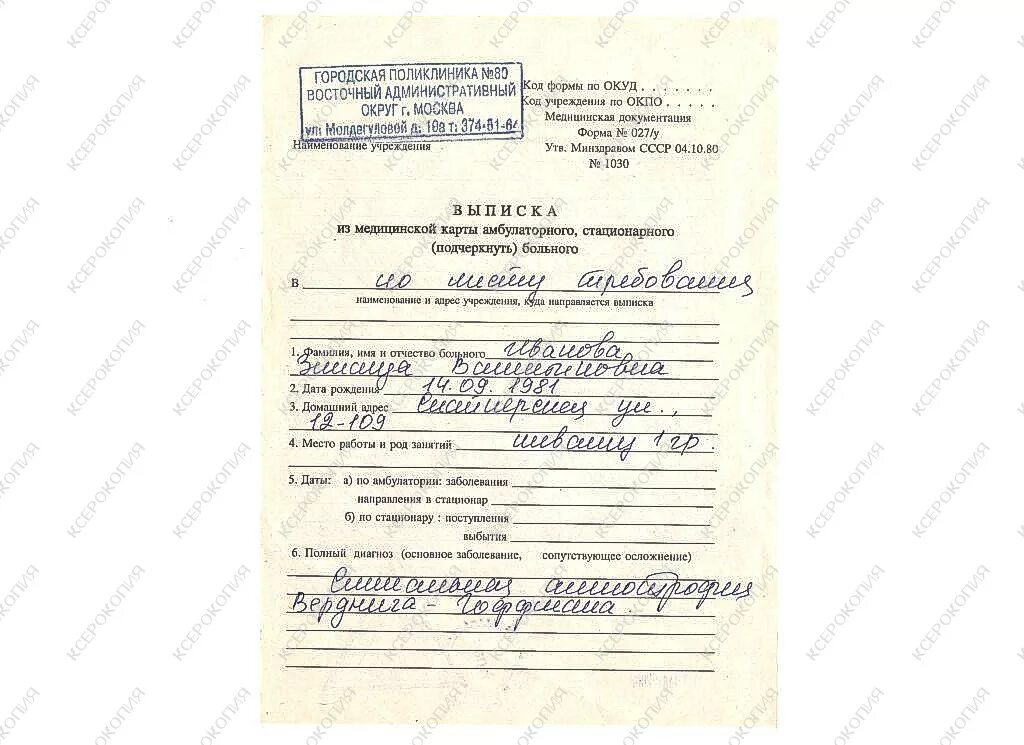 ГОРОДСКАЯ ПОЛИКЛИНИКА №80
ВОСТОЧНЫЙ АДМИНИСТРАТИВНЫЙ
ОКРУГ г. МОСКВА
ул. Молдагуловой д. 10а т: 374-51-64
Наименование учреждения
Код формы по ОКУД . . . . . . .
Код учреждения по ОКПО . . . . .
Медицинская документация
Форма № 027/у
Утв. Минздравом СССР 04.10.80
№ 1030
ВЫПИСКА
из медицинской карты амбулаторного, стационарного
(подчеркнуть) больного
в по месту требования
наименование и адрес учреждения, куда направляется выписка
1. Фамилия, имя и отчество больного Иванова
Валентиновна
2. Дата рождения 14.09.1981
3. Домашний адрес Снайперская ул.,
12-109
4. Место работы и род занятий инвалид 1 гр.
5. Даты: а) по амбулатории: заболевания
направления в стационар
б) по стационару : поступления
выбытия
6. Полный диагноз (основное заболевание, сопутствующее осложнение)
Спинальная амиотрофия
Верднига - Гоффмана.
КСЕРОКОПИЯ